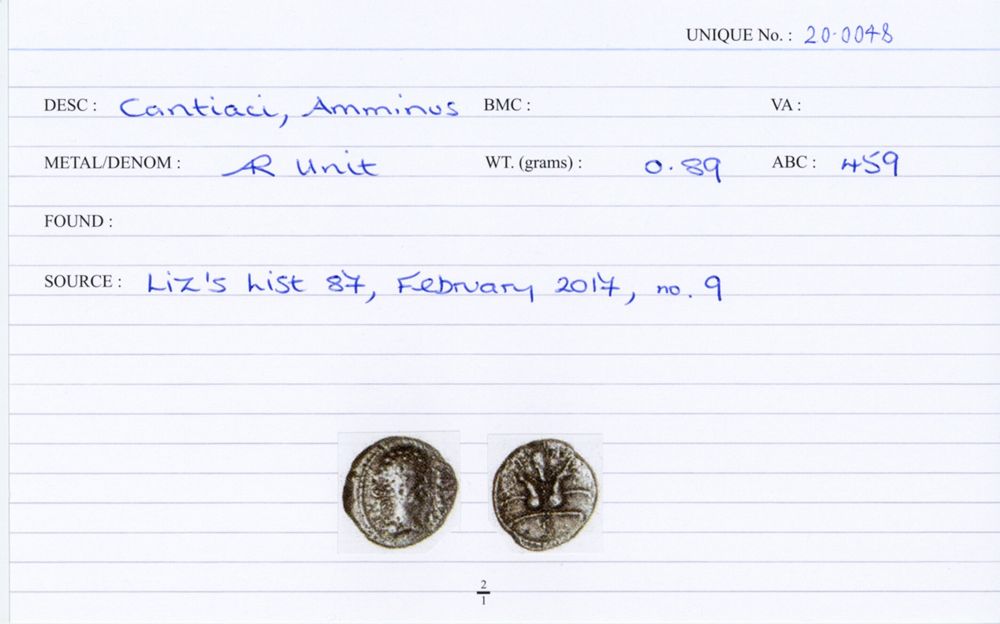 UNIQUE No. : 20.0048
DESC : Cantiaci, Amminus BMC : VA :
METAL/DENOM : AR Unit WT. (grams) : 0.89 ABC : 459
FOUND :
SOURCE : Liz's List 87, February 2017, no. 9
2
1